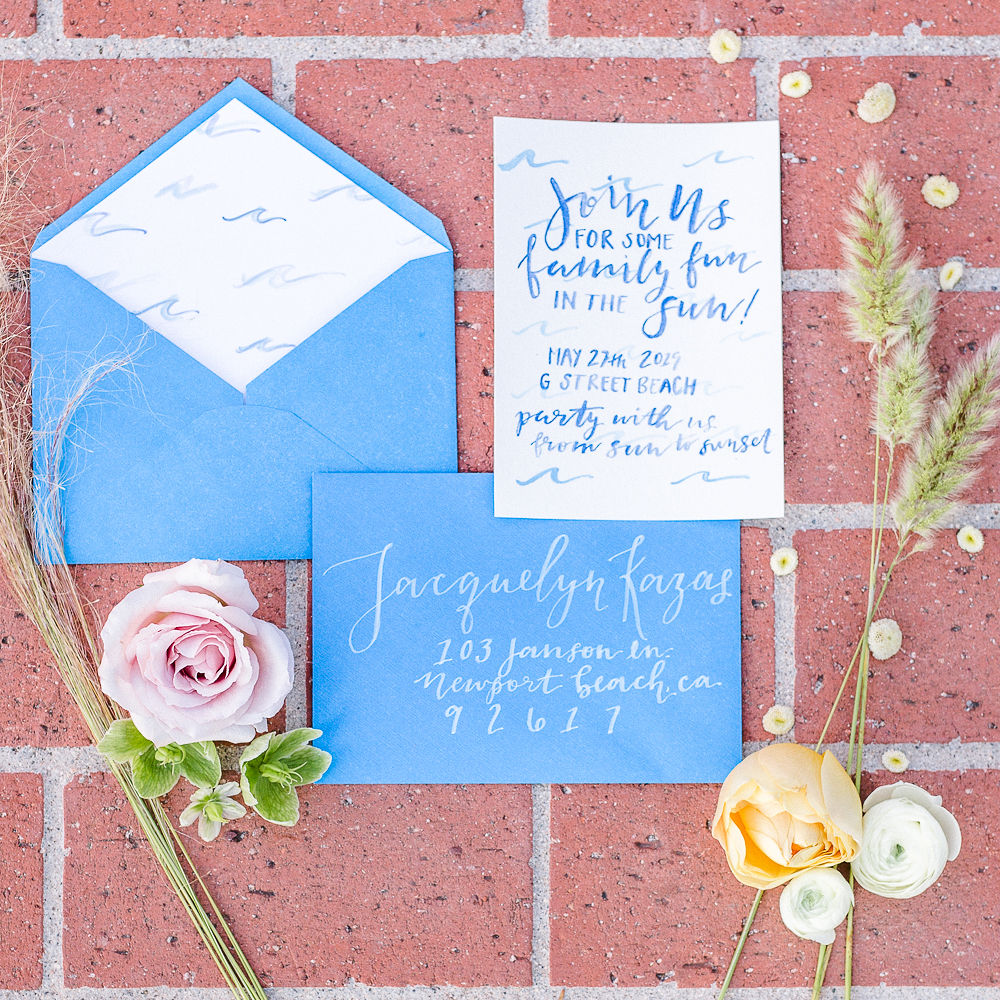 Join Us
FOR SOME
family fun
IN THE
sun!
MAY 27th 2029
G STREET BEACH
party with us
from sun to sunset
Jacquelyn Kazas
103 Janson ln.
Newport beach, ca.
92617